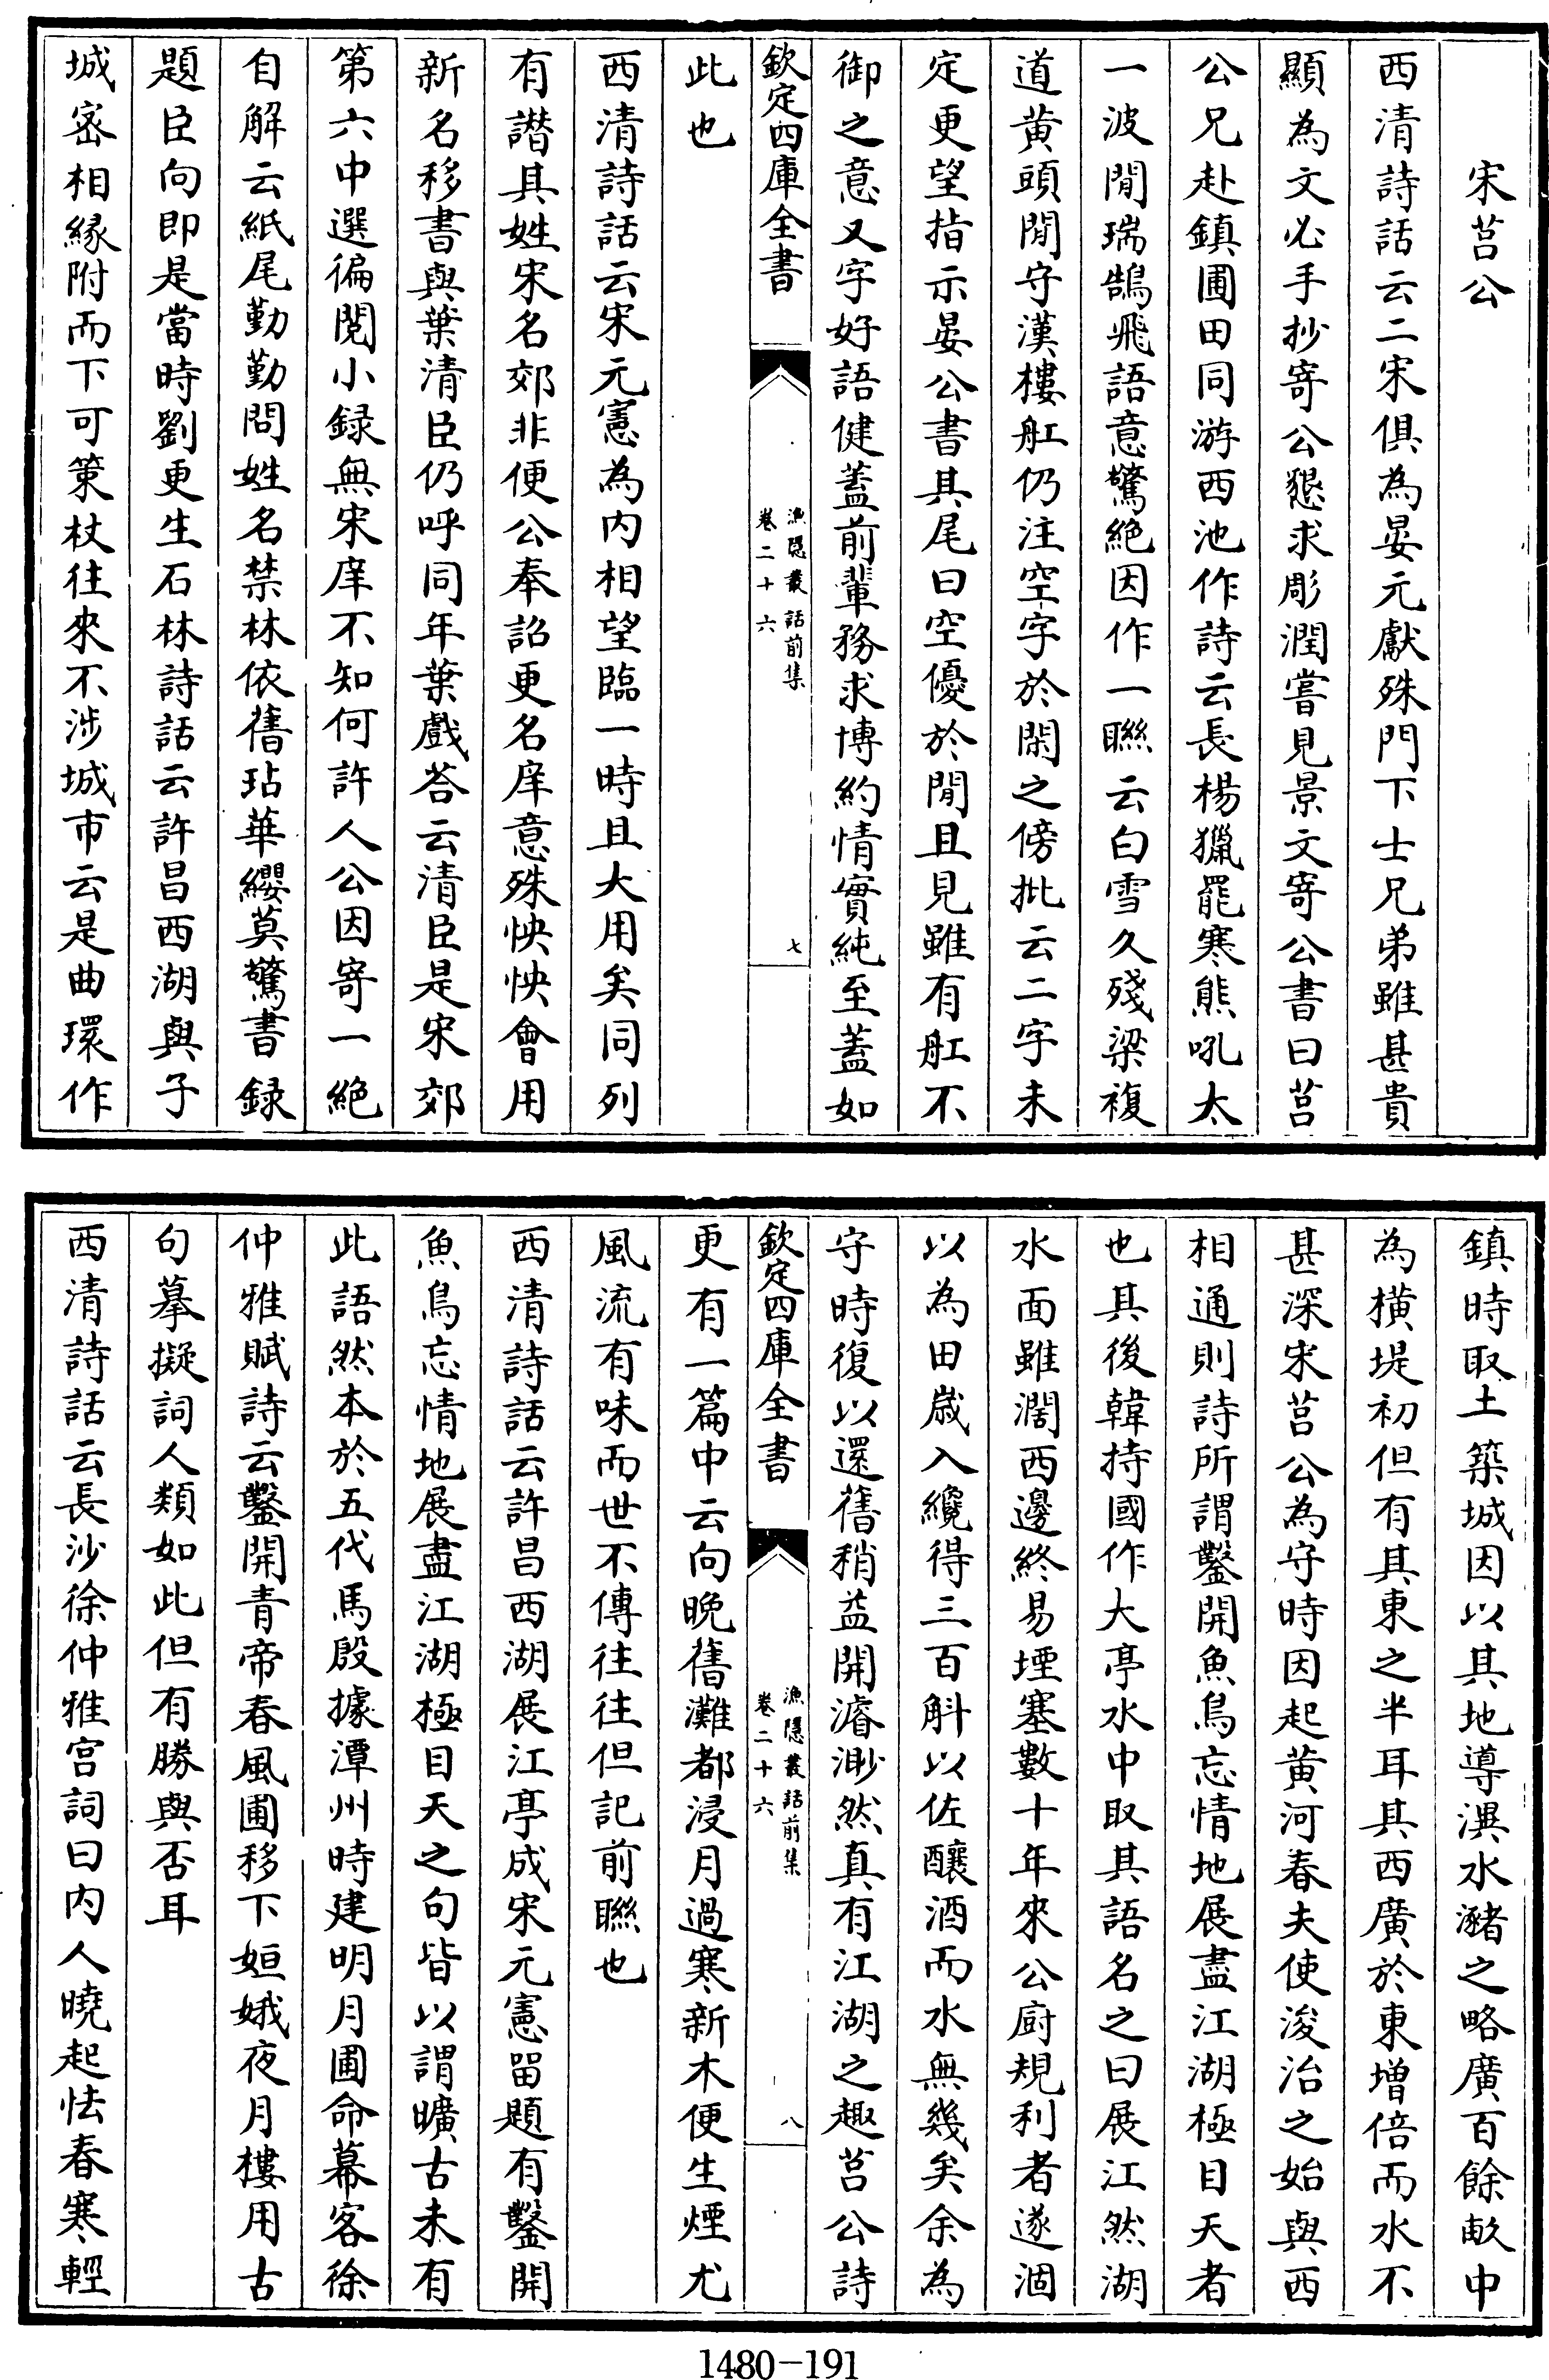 宋莒公
西清詩話云二宋俱為晏元獻殊門下士兄弟雖甚貴
顯為文必手抄寄公懇求彫潤嘗見景文寄公書曰莒
公兄赴鎮圃田同游西池作詩云長楊獵罷寒熊吼太
一波閒瑞鵠飛語意驚絶因作一聯云白雪久殘梁複
道黄頭閒守漢樓舡仍注空字於閑之傍批云二字未
定更望指示晏公書其尾曰空優於閒且見雖有舡不
御之意又字好語健蓋前輩務求博約情實純至蓋如
此也
欽定四庫全書
漁隱叢話前集
卷二十六
七
西清詩話云宋元憲為内相望臨一時且大用矣同列
有譖其姓宋名郊非便公奉詔更名庠意殊怏怏會用
新名移書與葉清臣仍呼同年葉戲荅云清臣是宋郊
第六中選徧閱小録無宋庠不知何許人公因寄一絶
自解云紙尾勤勤問姓名禁林依舊玷華纓莫驚書録
題臣向即是當時劉更生石林詩話云許昌西湖與子
城宻相緣附而下可策杖往來不涉城市云是曲環作
鎮時取土築城因以其地導潩水瀦之略廣百餘畝中
為横堤初但有其東之半耳其西廣於東增倍而水不
甚深宋莒公為守時因起黄河春夫使浚治之始與西
相通則詩所謂鑿開魚鳥忘情地展盡江湖極目天者
也其後韓持國作大亭水中取其語名之曰展江然湖
水面雖濶西邊終易堙塞數十年來公厨規利者遂涸
以為田歳入纔得三百斛以佐釀酒而水無幾矣余為
守時復以還舊稍益開濬渺然真有江湖之趣莒公詩
更有一篇中云向晚舊灘都浸月過寒新木便生煙尤
欽定四庫全書
漁隱叢話前集
卷二十六
八
風流有味而世不傳往往但記前聯也
西清詩話云許昌西湖展江亭成宋元憲留題有鑿開
魚鳥忘情地展盡江湖極目天之句皆以謂曠古未有
此語然本於五代馬殷據潭州時建明月圃命幕客徐
仲雅賦詩云鑿開青帝春風圃移下姮娥夜月樓用古
句摹擬詞人類如此但有勝與否耳
西清詩話云長沙徐仲雅宫詞曰内人曉起怯春寒輕
1480-191